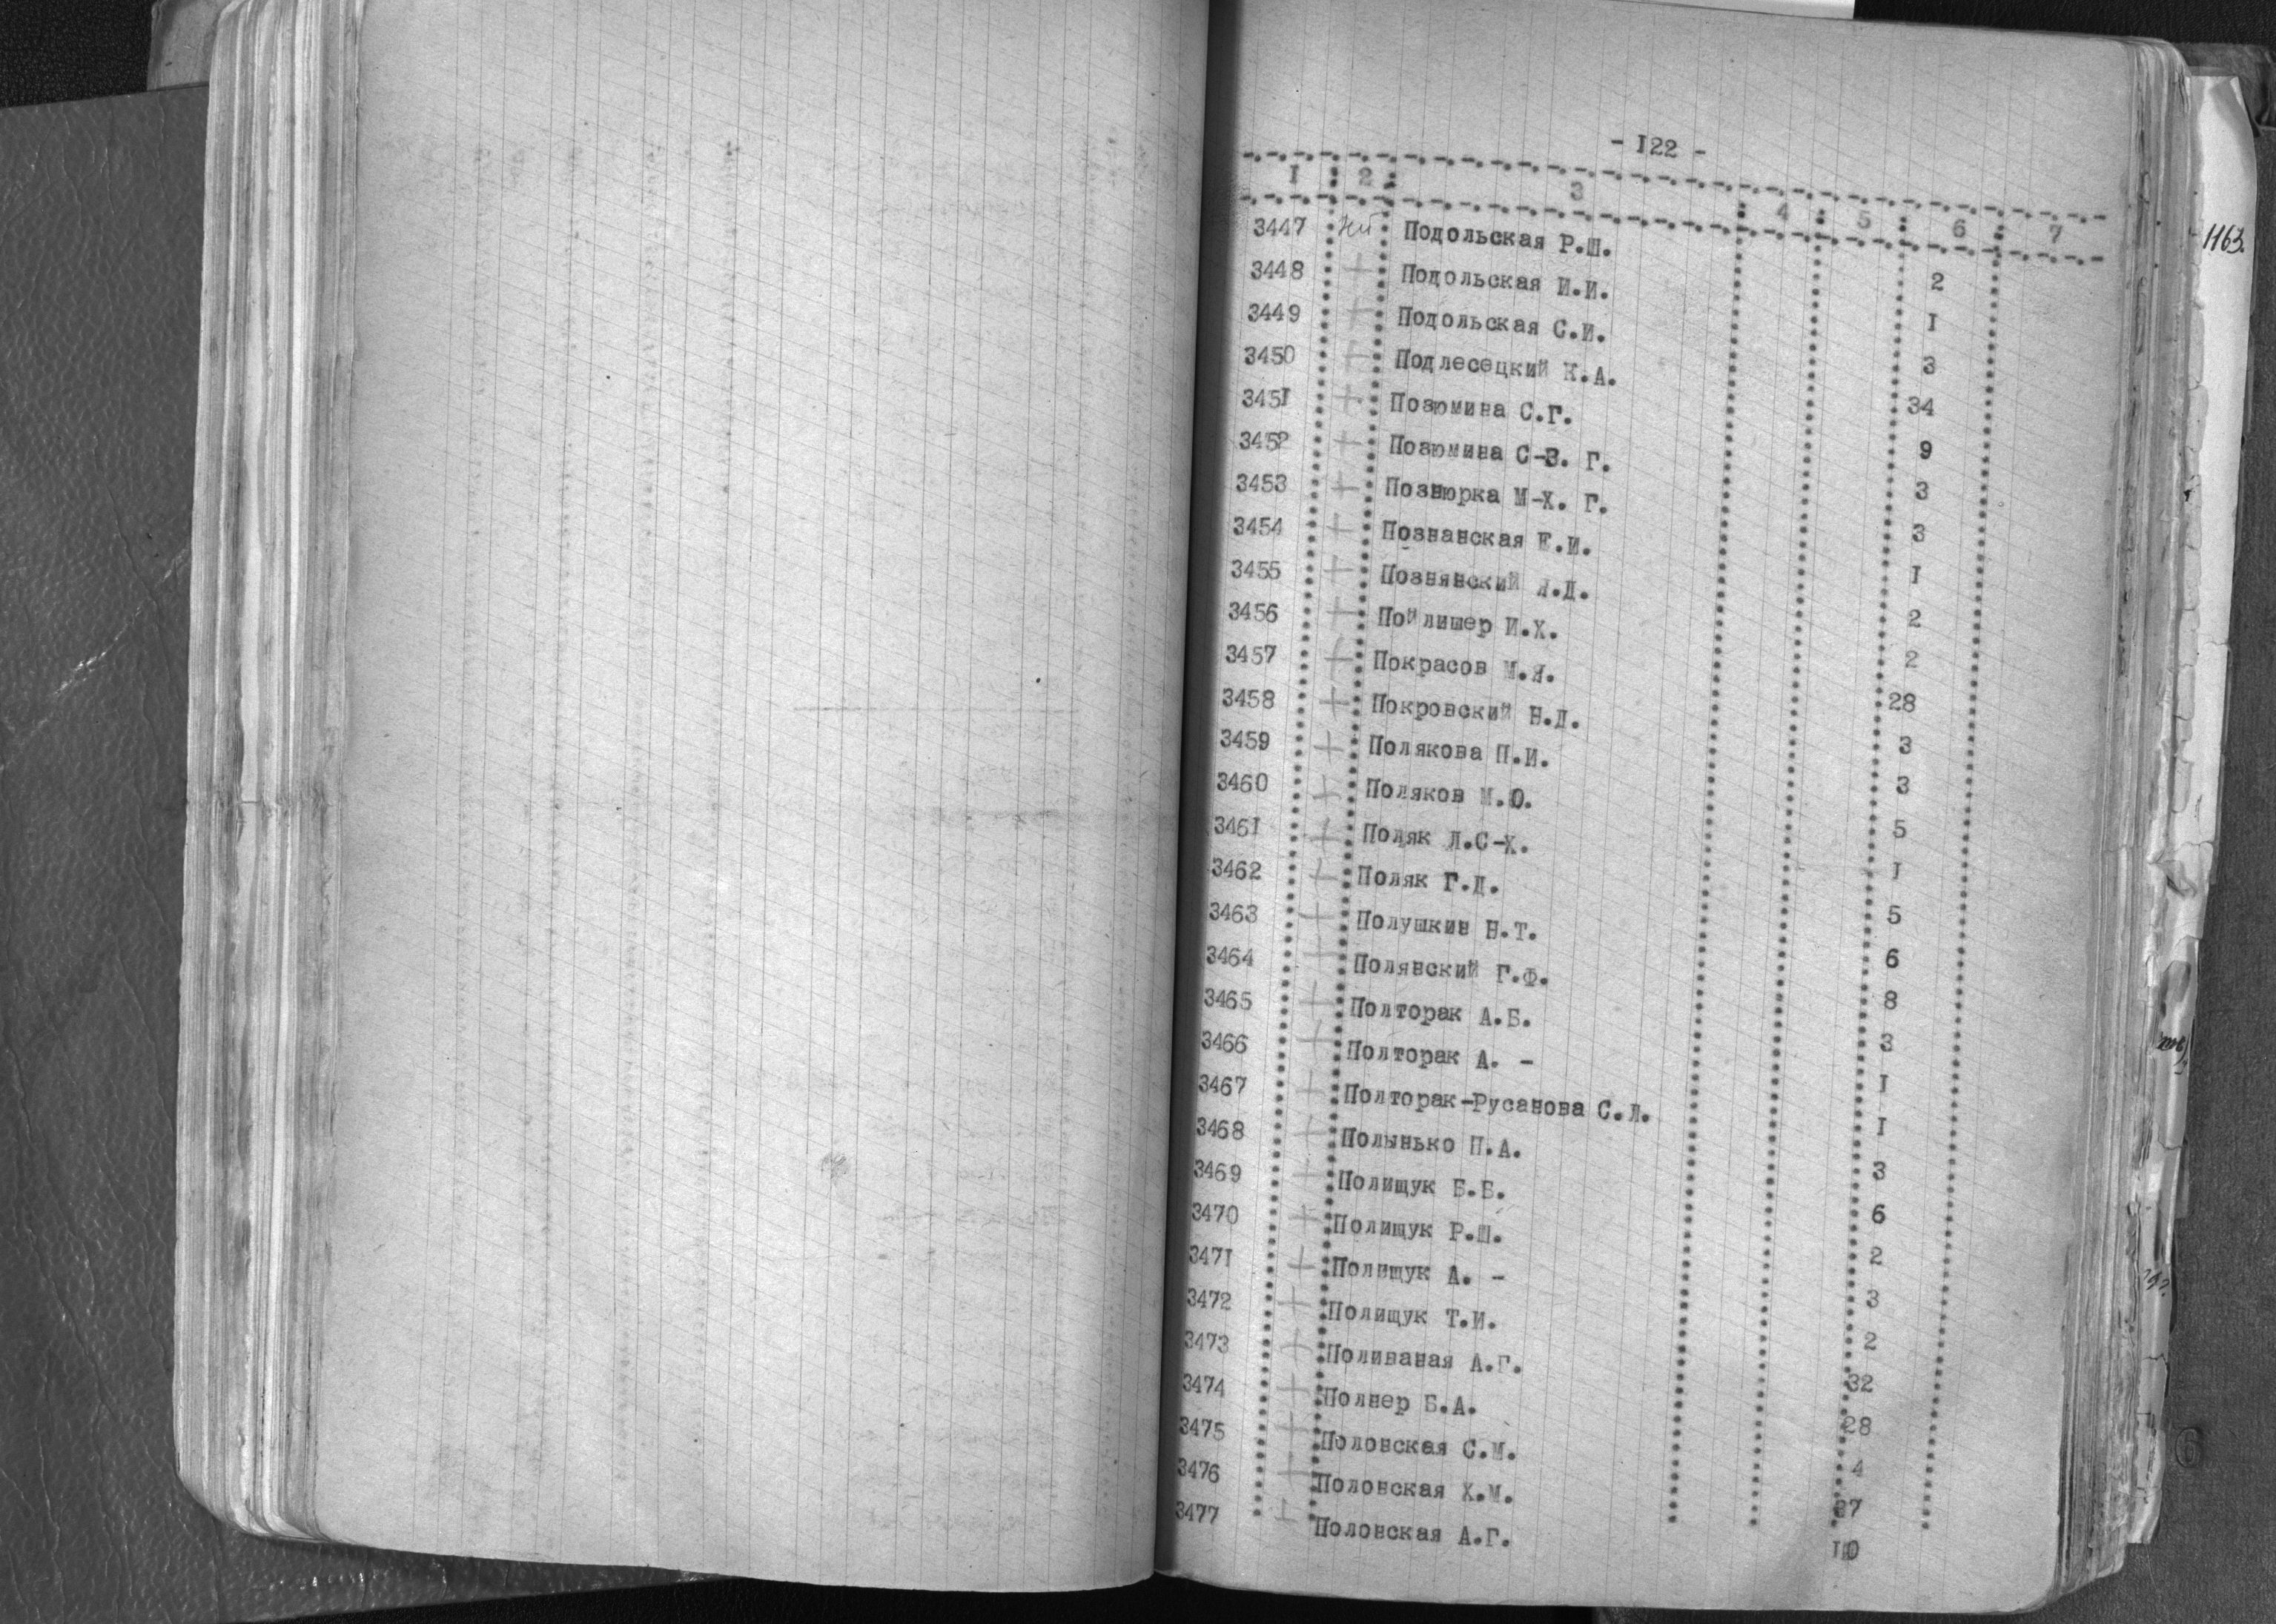 - I22 -
I 2 3 4 5 6 7
3447 Подольская Р.Ш. 2
3448 + Подольская И.И. I
3449 + Подольская С.И. 3
3450 + Подлесецкий К.А. 34
345I + Позюмина С.Г. 9
3452 + Позюмина С-З. Г. 3
3453 + Познюрка М-Х. Г. 3
3454 + Познанская Е.И. I
3455 + Познянский Я.Д. 2
3456 + Пойлишер И.Х. 2
3457 + Покрасов М.Я. 28
3458 + Покровский Н.Д. 3
3459 + Полякова П.И. 3
3460 + Поляков М.Ю. 5
346I + Поляк Л.С-Х. I
3462 + Поляк Г.Д. 5
3463 + Полушкин Н.Т. 6
3464 + Полянский Г.Ф. 8
3465 + Полторак А.Б. 3
3466 + Полторак А. - I
3467 + Полторак-Русанова С.Л. I
3468 + Полынько П.А. 3
3469 + Полищук Б.Б. 6
3470 + Полищук Р.Ш. 2
347I + Полищук А. - 3
3472 + Полищук Т.И. 2
3473 + Поливаная А.Г. 32
3474 + Полнер Б.А. 28
3475 + Половская С.М. 4
3476 + Половская Х.М. 37
3477 + Половская А.Г. I0
1163.